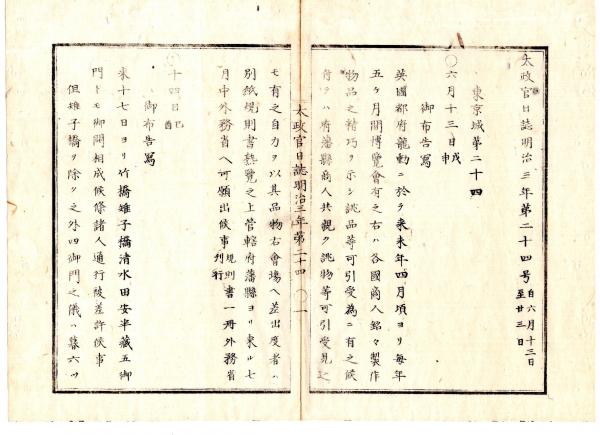 太政官日誌明治三年第二十四号 自六月十三日至廿三日
東京城第二十四
○六月十三日戊申
御布告写
英國都府龍動ニ於テ来未年四月頃ヨリ毎年
五ヶ月間博覽會有之右ハ各國商人銘々製作
物品之精巧ヲ示シ誂品等可引受為ニ有之候
府ヲハ府藩縣商人共親ク誂物等可引受見込
太政官日誌明治三年第二十四 ○一
モ有之自力ヲ以其品物右會場ヘ差出度者ハ
別紙規則書熟覽之上管轄府藩縣ヨリ来ル七
月中外務省ヘ可願出候事 規則書一冊外務省刊行
○十四日己酉
御布告写
来十七日ヨリ竹橋雉子橋清水田安半藏五御
門トモ御開相成候條諸人通行被差許候事
但雉子橋ヲ除ク之外四御門之儀ハ暮六ツ